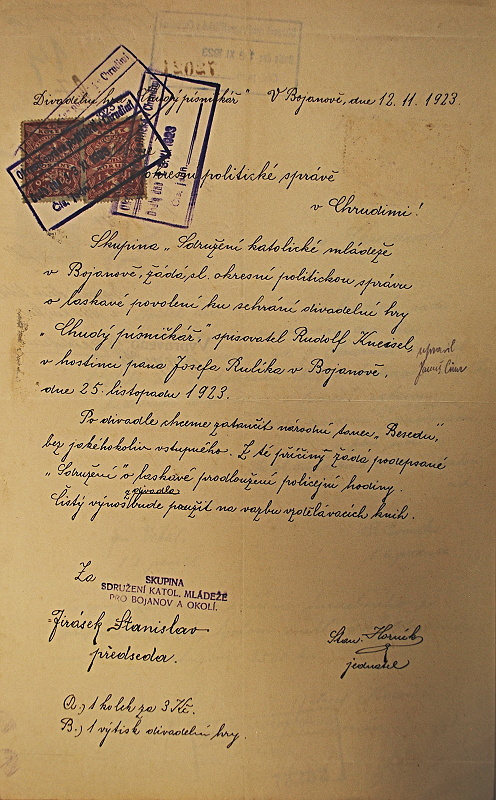 12021
Divadelní hra „Chudý písničkář" V Bojanově, dne 12.11.1923.
okresní politické správě
v Chrudimi!
Skupina „Sdružení katolické mládeže
v Bojanově, žádá, sl. okresní politickou správu
o laskavé povolení ku sehrání divadelní hry
„Chudý písničkář," spisovatel Rudolf Kneisel,
v hostinci pana Josefa Rulíka v Bojanově,
dne 25. listopadu 1923.
Po divadle chceme zatančit národní tanec „Besedu",
bez jakéhokoliv vstupného. Z té příčiny žádá podepsané
„Sdružení" o laskavé prodloužení policejní hodiny.
Čistý výnos z divadla bude použit na vazbu vzdělávacích knih.
Za
SKUPINA
SDRUŽENÍ KATOL. MLÁDEŽE
PRO BOJANOV A OKOLÍ.
Jirásek Stanislav
předseda.
Stan.
jednatel
A.) 1 kolek za 3 Kč.
B.) 1 výtisk divadelní hry.